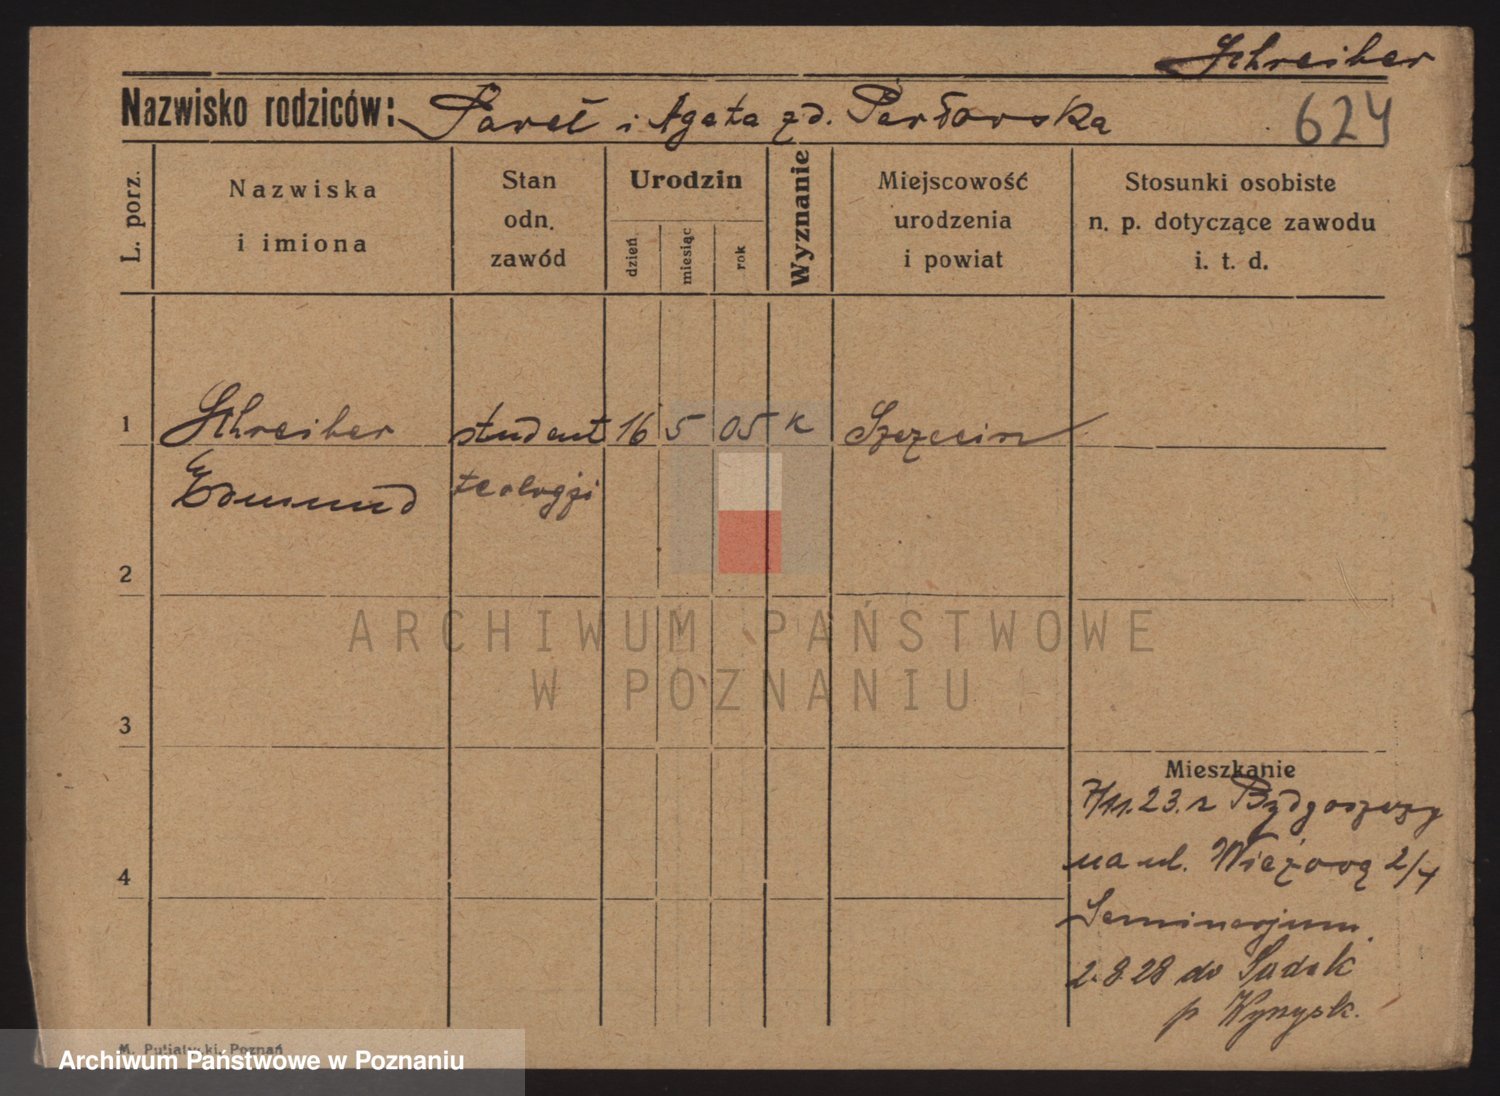 Schreiber
Nazwisko rodziców: Paweł i Agata zd. Parłowska
624
L. porz.
Nazwiska i imiona
Stan odn. zawód
Urodzin
dzień
miesiąc
rok
Wyznanie
Miejscowość urodzenia i powiat
Stosunki osobiste n. p. dotyczące zawodu i. t. d.
1 Schreiber student 16 5 05 k Szczecin
Edmund teologji
2
ARCHIWUM PAŃSTWOWE
W POZNANIU
3
Mieszkanie
7/11.23. z Bydgoszczy
na ul. Wieżową 2/4
4
Seminarjum.
2.8.28 do Sadek
p Wyrzysk.
M. Putiatycki, Poznań
Archiwum Państwowe w Poznaniu